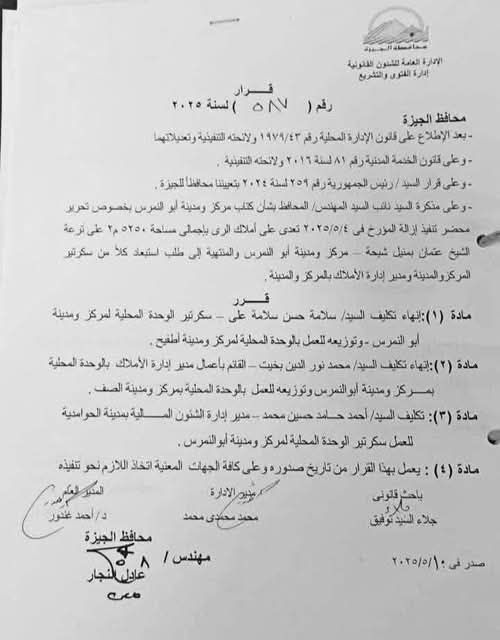 محافظة الجيزة
الإدارة العامة للشئون القانونية
إدارة الفتوى والتشريع
قــرار
رقم ( ٥٨٧ ) لسنة ٢٠٢٥
محافظ الجيزة
- بعد الإطلاع على قانون الإدارة المحلية رقم ١٩٧٩/٤٣ ولائحته التنفيذية وتعديلاتهما
- وعلى قانون الخدمة المدنية رقم ٨١ لسنة ٢٠١٦ ولائحته التنفيذية .
- وعلى قرار السيد / رئيس الجمهورية رقم ٢٥٩ لسنة ٢٠٢٤ بتعييننا محافظاً للجيزة .
- وعلى مذكرة السيد نائب السيد المهندس/ المحافظ بشأن كتاب مركز ومدينة أبو النمرس بخصوص تحرير
محضر تنفيذ إزالة المؤرخ فى ٢٠٢٥/٥/٤ تعدى على أملاك الرى بإجمالي مساحة ٥٢٥٠ م٢ على ترعة
الشيخ عثمان بمنيل شيحة – مركز ومدينة أبو النمرس والمنتهية إلى طلب استبعاد كلاً من سكرتير
المركزوالمدينة ومدير إدارة الأملاك بالمركز والمدينة .
قــرر
مادة (١):إنهاء تكليف السيد/ سلامة حسن سلامة على – سكرتير الوحدة المحلية لمركز ومدينة
أبو النمرس - وتوزيعه للعمل بالوحدة المحلية لمركز ومدينة أطفيح .
مادة (٢):إنهاء تكليف السيد/ محمد نور الدين بخيت – القائم بأعمال مدير إدارة الأملاك بالوحدة المحلية
بمــركز ومدينة أبوالنمرس وتوزيعه للعمل بالوحدة المحلية بمركز ومدينة الصف .
مادة (٣): تكليف السيد/ أحمد حــامد حسين محمد – مدير إدارة الشئون المــالية بمدينة الحوامدية
للعمل سكرتير الوحدة المحلية لمركز ومدينة أبوالنمرس .
مادة (٤) : يعمل بهذا القرار من تاريخ صدوره وعلى كافة الجهات المعنية اتخاذ اللازم نحو تنفيذه
باحث قانونى مدير الإدارة المدير العام
جلاء السيد توفيق محمد محمدى محمد د/ أحمد غندور
محافظ الجيزة
مهندس /
عادل النجار
صدر فى ٢٠٢٥/٥/١٠